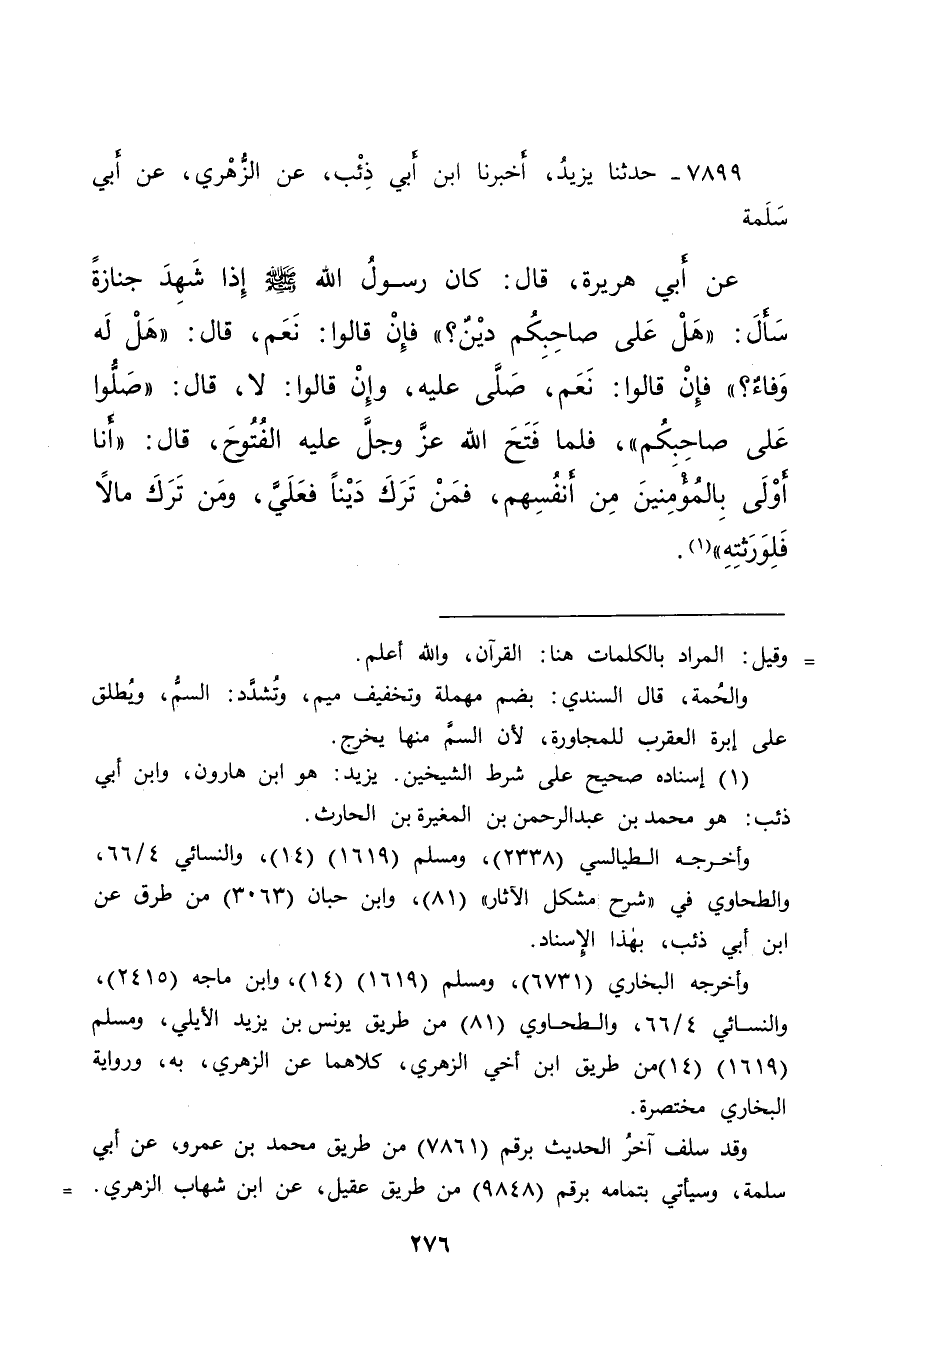 ٧٨٩٩ ـ حدثنا يزيدُ، أَخبرنا ابن أَبي ذِئْب، عن الزُّهْري، عن أَبي
سَلَمة
عن أَبي هريرة، قال: كان رسولُ الله ﷺ إِذا شَهِدَ جنازةً
سَأَلَ: «هَلْ عَلى صاحِبِكُم ديْنٌ؟» فإنْ قالوا: نَعَم، قال: «هَلْ لَه
وَفاءٌ؟» فإنْ قالوا: نَعَم، صَلَّى عليه، وإنْ قالوا: لا، قال: «صَلُّوا
عَلى صاحِبِكُم»، فلما فَتَحَ الله عزَّ وجلَّ عليه الفُتُوحَ، قال: «أَنا
أَوْلَى بِالمُؤْمِنينَ مِن أَنفُسِهم، فمَنْ تَرَكَ دَيْناً فعَلَيَّ، ومَن تَرَكَ مالًا
فَلِوَرَثتِهِ»(١).
= وقيل: المراد بالكلمات هنا: القرآن، والله أعلم.
والحُمة، قال السندي: بضم مهملة وتخفيف ميم، وتُشدَّد: السمُّ، ويُطلق
على إبرة العقرب للمجاورة، لأن السمَّ منها يخرج.
(١) إسناده صحيح على شرط الشيخين. يزيد: هو ابن هارون، وابن أبي
ذئب: هو محمد بن عبدالرحمن بن المغيرة بن الحارث.
وأخرجه الطيالسي (٢٣٣٨)، ومسلم (١٦١٩) (١٤)، والنسائي ٦٦/٤،
والطحاوي في «شرح مشكل الآثار» (٨١)، وابن حبان (٣٠٦٣) من طرق عن
ابن أبي ذئب، بهٰذا الإِسناد.
وأخرجه البخاري (٦٧٣١)، ومسلم (١٦١٩) (١٤)، وابن ماجه (٢٤١٥)،
والنسائي ٦٦/٤، والطحاوي (٨١) من طريق يونس بن يزيد الأيلي، ومسلم
(١٦١٩) (١٤)من طريق ابن أخي الزهري، كلاهما عن الزهري، به، ورواية
البخاري مختصرة.
وقد سلف آخرُ الحديث برقم (٧٨٦١) من طريق محمد بن عمرو، عن أبي
سلمة، وسيأتي بتمامه برقم (٩٨٤٨) من طريق عقيل، عن ابن شهاب الزهري. =
٢٧٦